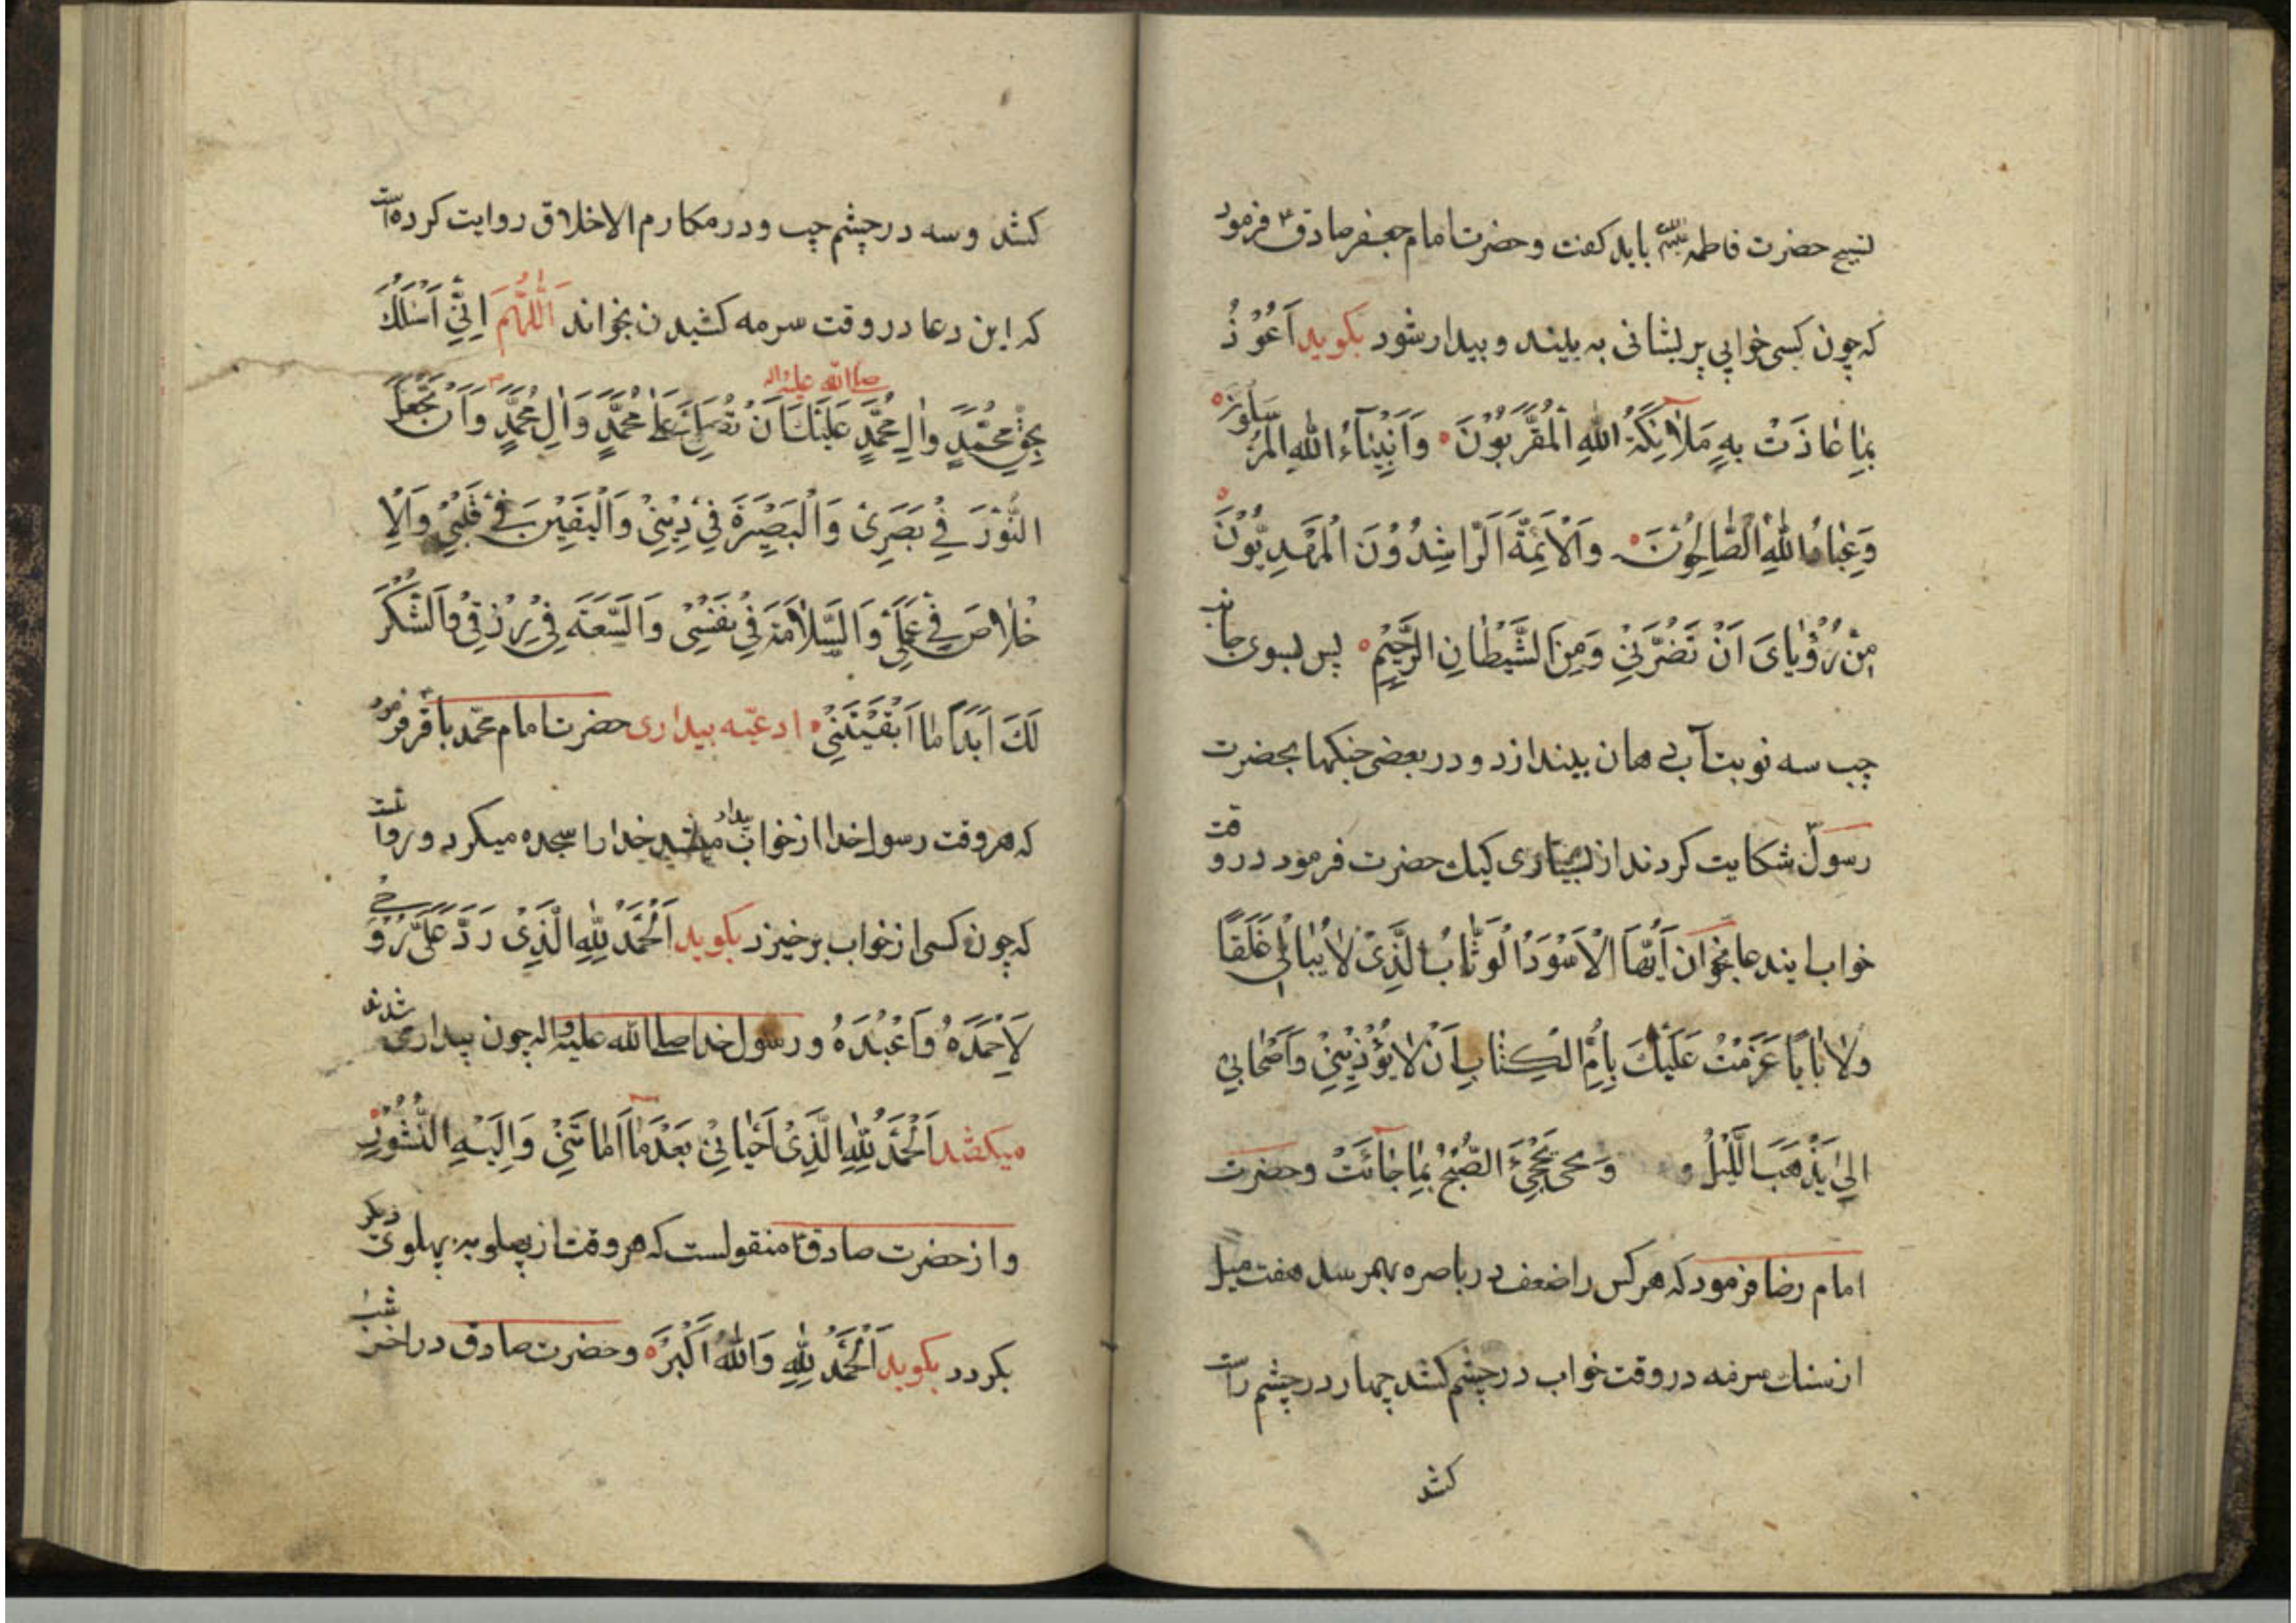 تسبیح حضرت فاطمه علیها السلام باید کفت و حضرت امام جعفر صادق ع فرمود
که چون کسی خوابی پریشانی به بیند و بیدار شود بکوید اَعُوْذُ
بِمٰا عٰاذَتْ بِهِ مَلاٰئِکَةُ اللهِ الْمُقَرَّبُوْنَ وَاَنْبِیٰآءُ اللهِ الْمُرْسَلُوْنَ
وَعِبٰادُ اللهِ الصّٰالِحُوْنَ وَالْاَئِمَّةُ الرّٰاشِدُوْنَ الْمَهْدِیُّوْنَ
مِنْ رُؤْیٰایَ اَنْ تَضُرَّنِیْ وَمِنَ الشَّیْطٰانِ الرَّجِیْمِ پس بسوی جانب
چپ سه نوبت آب دهان بیندازد و در بعضی جنکها بحضرت
رسول شکایت کردند از بسیاری کیك حضرت فرمود در وقت
خواب ایندعا بخوان اَیُّهَا الْاَسْوَدُ الْوَثّٰابُ الَّذِیْ لاٰ یُبٰالِیْ غَلَقًا
وَلاٰ بٰابًا عَزَمْتُ عَلَیْكَ بِاُمِّ الْکِتٰابِ اَنْ لاٰ یُؤْذِیْنِیْ وَاَصْحٰابِیْ
اِلیٰ یَذْهَبَ الَّلیْلُ و وَ یَجْیَٔ الصُّبْحُ بِمٰا جٰائَتْ وحضرت
امام رضا فرمود که هر کس را ضعف در باصره بهم رسد هفت میل
از سنك سرمه در وقت خواب در چشم کشد چهار در چشم راست
کشد
کشد و سه در چشم چپ و در مکارم الاخلاق روایت کرده است
که این دعا در وقت سرمه کشیدن بخواند اَللّٰهُمَّ اِنِّیْ اَسْئَلُكَ
بِحَقِّ مُحَمَّدٍ وَاٰلِ مُحَمَّدٍ صلی الله علیه واله عَلَیْكَ اَنْ تُصَلِّیَ عَلیٰ مُحَمَّدٍ وَاٰلِ مُحَمَّدٍ وَاَنْ تَجْعَلَ
النُّوْرَ فِیْ بَصَرِیْ وَالْبَصِیْرَةَ فِیْ دِیْنِیْ وَالْیَقِیْنَ فِیْ قَلْبِیْ وَالْاِ
خْلاٰصَ فِیْ عَمَلِیْ وَالسَّلاٰمَةَ فِیْ نَفْسِیْ وَالسَّعَةَ فِیْ رِزْقِیْ وَالشُّکْرَ
لَكَ اَبَدًا مٰا اَبْقَیْتَنِیْ ادعیّه بیداری حضرت امام محمّد باقر فرمود
که هر وقت رسول خدا از خواب بیدار میشد خدا را سجده میکرد و روایتست
که چون کسی از خواب برخیزد بکوید اَلْحَمْدُ لِلّٰهِ الَّذِیْ رَدَّ عَلَیَّ رُوْحِیْ
لِاَحْمَدَهُ وَاَعْبُدَهُ و رسول خدا صلی الله علیه واله چون بیدار می شدند
میکفتند اَلْحَمْدُ لِلّٰهِ الَّذِیْ اَحْیٰانِیْ بَعْدَ مٰا اَمٰاتَنِیْ وَاِلَیْهِ النُّشُوْرُ
و از حضرت صادق ع منقولست که هر وقت از پهلو به پهلوی دیکر
بکردد بکوید اَلْحَمْدُ لِلّٰهِ وَاللهُ اَکْبَرُ و حضرت صادق در اخر شب